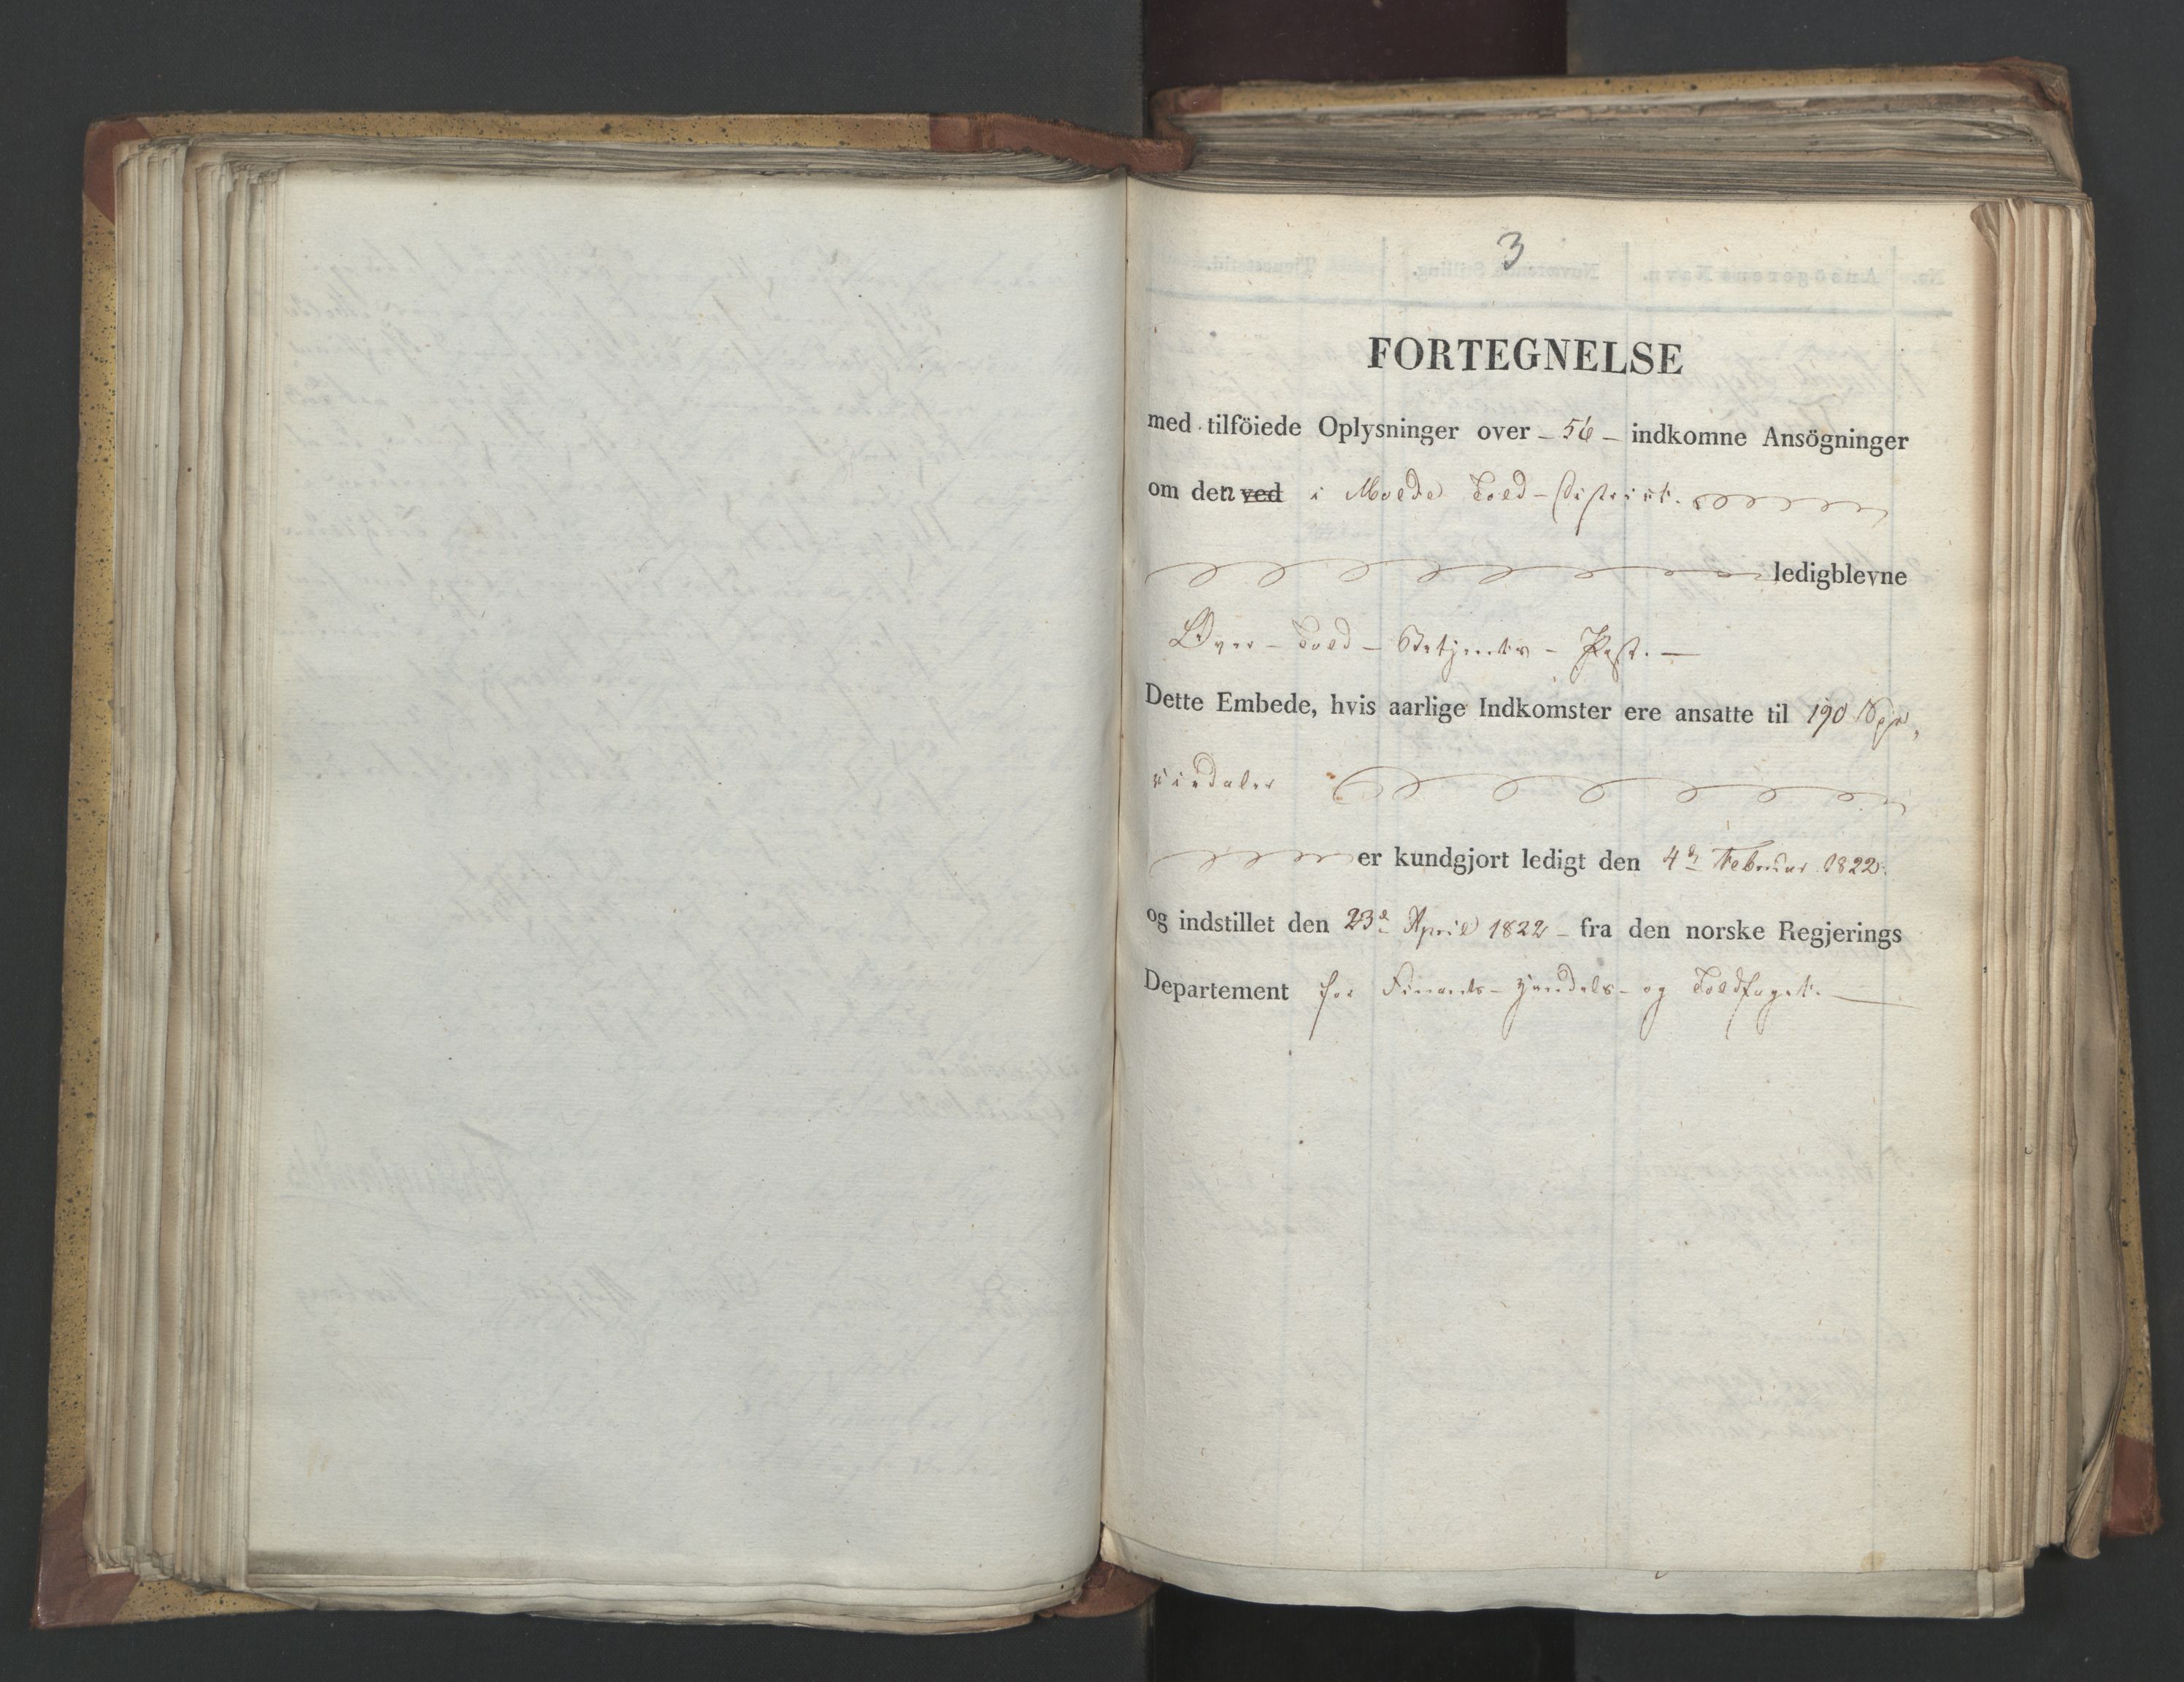 3
FORTEGNELSE
med tilföiede Oplysninger over – 56 – indkomne Ansögninger
om den ved i Molde Told-District.
ledigblevne
Over-Told-Betjents-Post. —
Dette Embede, hvis aarlige Indkomster ere ansatte til 190 Spe-
ciedaler
er kundgjort ledigt den 4de Februar 1822.
og indstillet den 23de April 1822 – fra den norske Regjerings
Departement for Finants- Handels- og Toldfaget. —